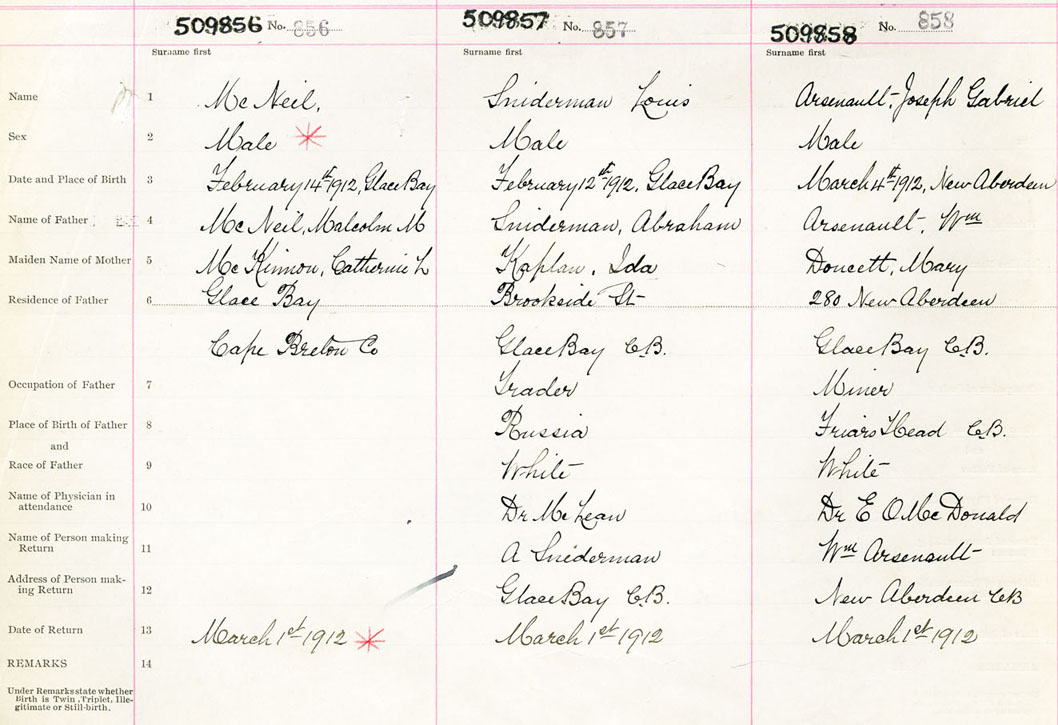 509856 No. 856 509857 No. 857 509858 No. 858
Surname first Surname first Surname first
Name 1 McNeil, Sniderman Louis Arsenault, Joseph Gabriel
Sex 2 Male Male Male
Date and Place of Birth 3 February 14th 1912, Glace Bay February 12th 1912, Glace Bay March 4th 1912, New Aberdeen
Name of Father 4 McNeil, Malcolm M Sniderman, Abraham Arsenault, Wm
Maiden Name of Mother 5 McKinnon, Catherine L Kaplan, Ida Doucett, Mary
Residence of Father 6 Glace Bay Brookside St 280 New Aberdeen
Cape Breton Co Glace Bay C.B. Glace Bay C.B.
Occupation of Father 7 Trader Miner
Place of Birth of Father 8 Russia Friars Head C.B.
and
Race of Father 9 White White
Name of Physician in
attendance 10 Dr McLean Dr E O McDonald
Name of Person making
Return 11 A Sniderman Wm Arsenault
Address of Person mak-
ing Return 12 Glace Bay C.B. New Aberdeen CB
Date of Return 13 March 1st 1912 March 1st 1912 March 1st 1912
REMARKS 14
Under Remarks state whether
Birth is Twin, Triplet, Ille-
gitimate or Still-birth.